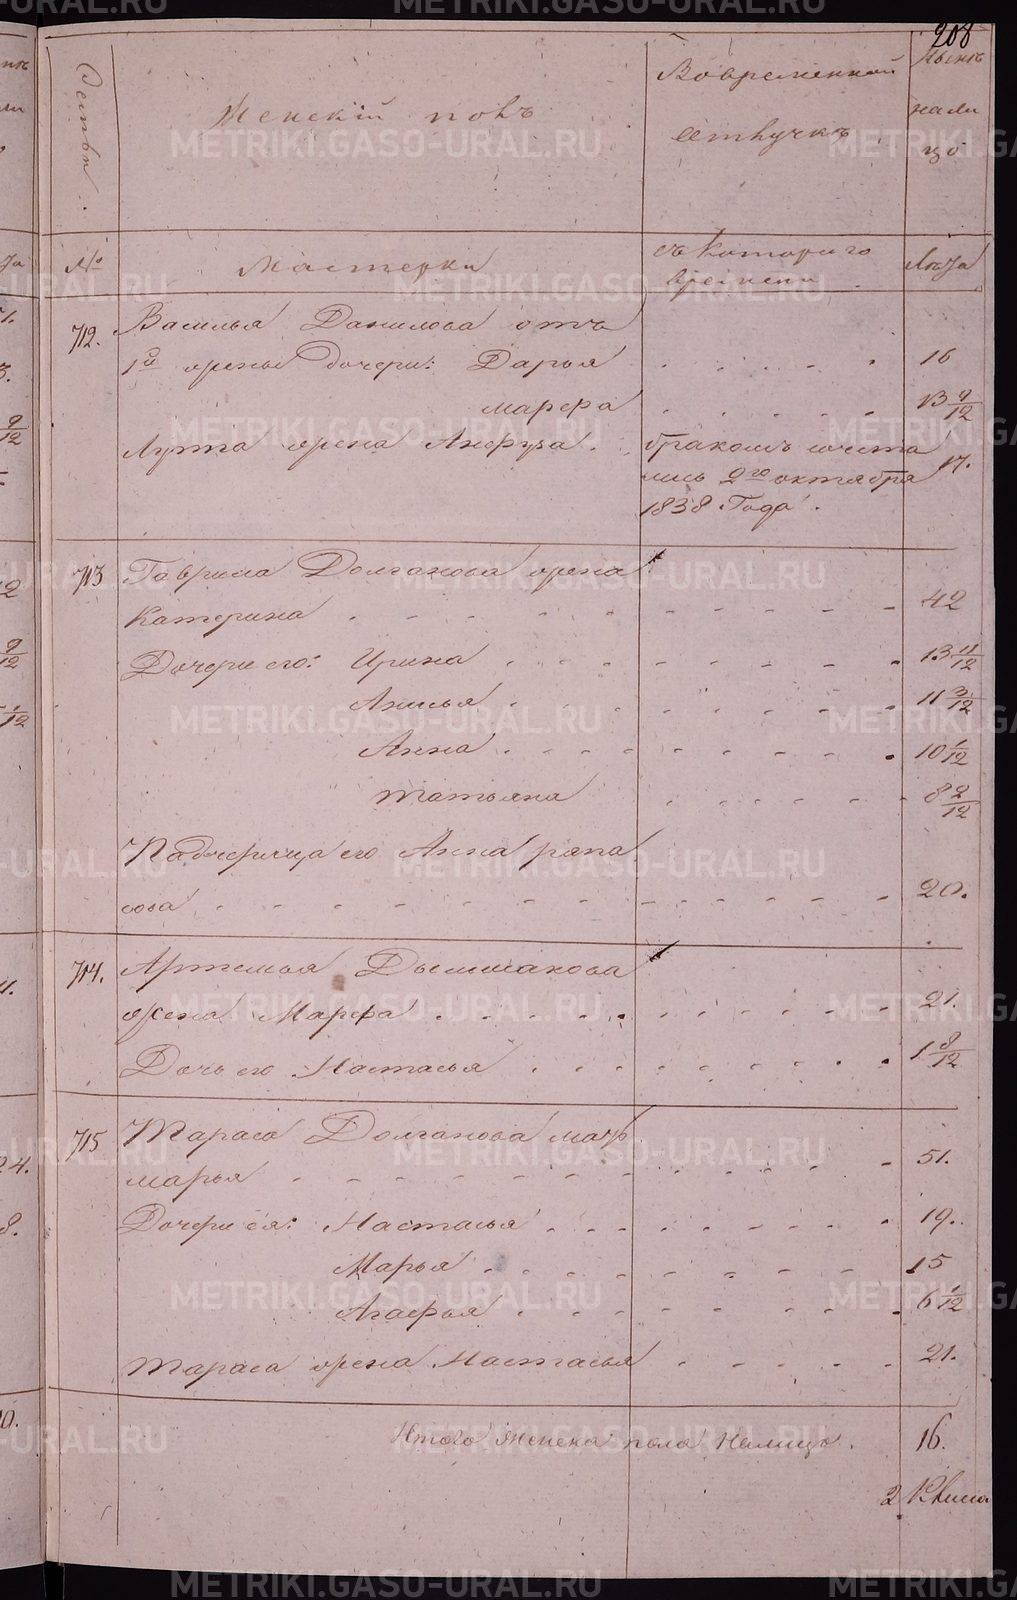 208
Семьи
Женскій полъ
Вовременной
отлучкѣ
Нынѣ
на ли
цо
№
Мастерки
съ Котораго
времени
Лѣта
712. Василья Данилова отъ
1й жены дочери: Дарья . . . . . 16
Марфа . . . . . 13 9/12
Лупта жена Анфуза. бракомъ сочета
лись 2го октября 17.
1838 Года.
713 Гаврила Долганова жена
Катерина - - - - - 42
Дочери его: Ирина - - - - - 13 11/12
Анисья - - - - - 11 3/12
Анна - - - - - 10 1/12
Татьяна - - - - - 8 2/12
Падчерица его Анна рапа
сова - - - - - 20.
714. Артемья Дымшакова
жена Марфа - - - - - 21.
Дочь его Настасья - - - - - 1 8/12
715 Тараса Долганова мать
Марья - - - - - 51.
Дочери ея: Настасья - - - - - 19.
Марья - - - - - 15
Агафья - - - - - 6 1/12
Тараса жена Настасья - - - - - 21.
Итого женска пола Налицо. 16.
METRIKI.GASO-URAL.RU